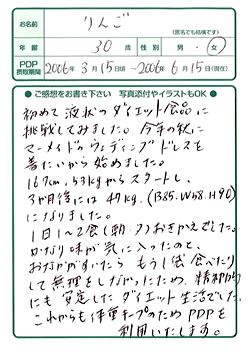 お名前 りんご
(匿名でも結構です)
年齢 30 歳 性別 男・女
PDP摂取期間 2006年3月15日頃〜2006年6月15日(現在)
●ご感想をお書き下さい 写真添付やイラストもOK●
初めて液状のダイエット食品に
挑戦してみました。今年の秋に
マーメイドのウェディングドレスを
着たいから始めました。
167cm、53kgからスタートし、
3か月後には47kg、(B85.W58.H90)
になりました。
1日1〜2食(朝・夕)おきかえでした。
かなり味が気に入ったのと、
おなかがすいたら もう1袋食べたり
して無理をしなかったため、精神的
にも安定したダイエット生活でした。
これからも体重キープのためPDPを
利用いたします。